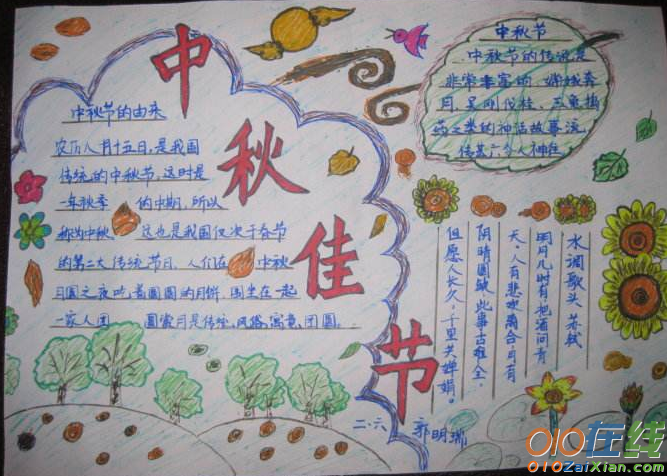 中秋佳节
中秋节的由来
农历八月十五日,是我国
传统的中秋节,这时是
一年秋季 的中期,所以
称为中秋, 这也是我国仅次于春节
的第二大传统节日,人们在 中秋
月圆之夜吃着圆圆的月饼,围坐在一起
一家人团 圆赏月是传统,风俗,寓意,团圆。
中秋节
中秋节的传说是
非常丰富的,嫦娥奔
月,吴刚伐桂,玉兔捣
药之类的神话故事流
传甚广,令人神往。
水调歌头 苏轼
明月几时有把酒问青
天,人有悲欢离合月有
阴晴圆缺,此事古难全。
但愿人长久,千里共婵娟。
二.六 郭明
010在线
010ZaiXian.com